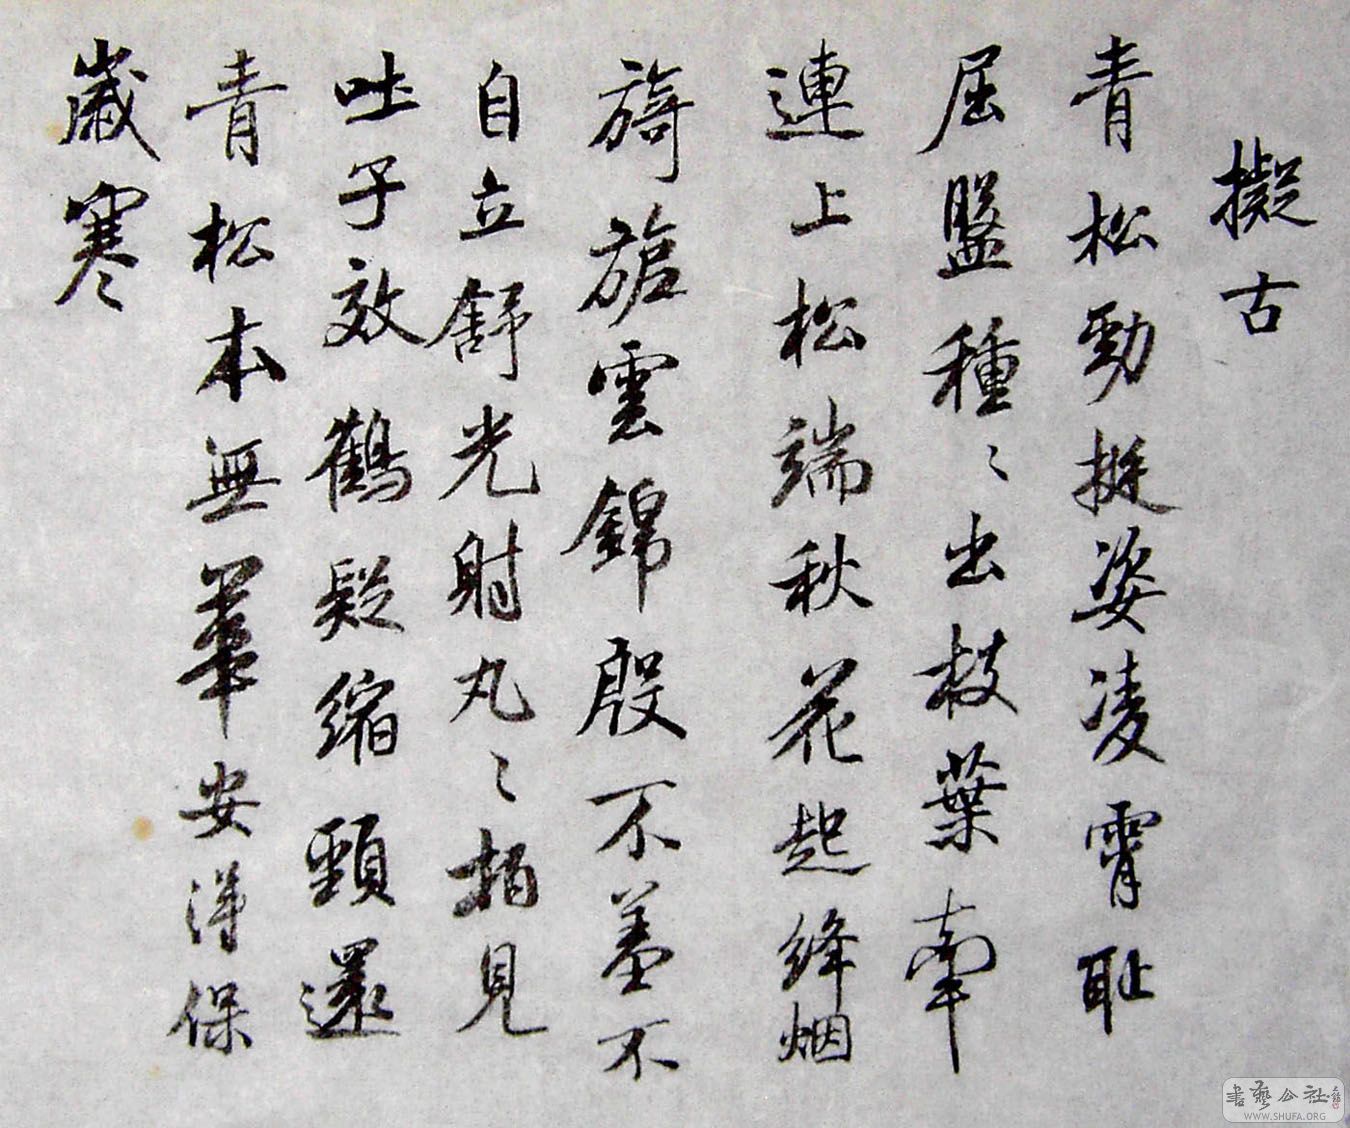 擬古
青松勁挺姿凌霄恥
屈盤種〻出枝葉牽
連上松端秋花起絳烟
旖旎雲錦殷不羞不
自立舒光射丸〻栢見
吐子效鶴疑縮頸還
青松本無華安得保
歲寒
書藝公社
WWW.SHUFA.ORG